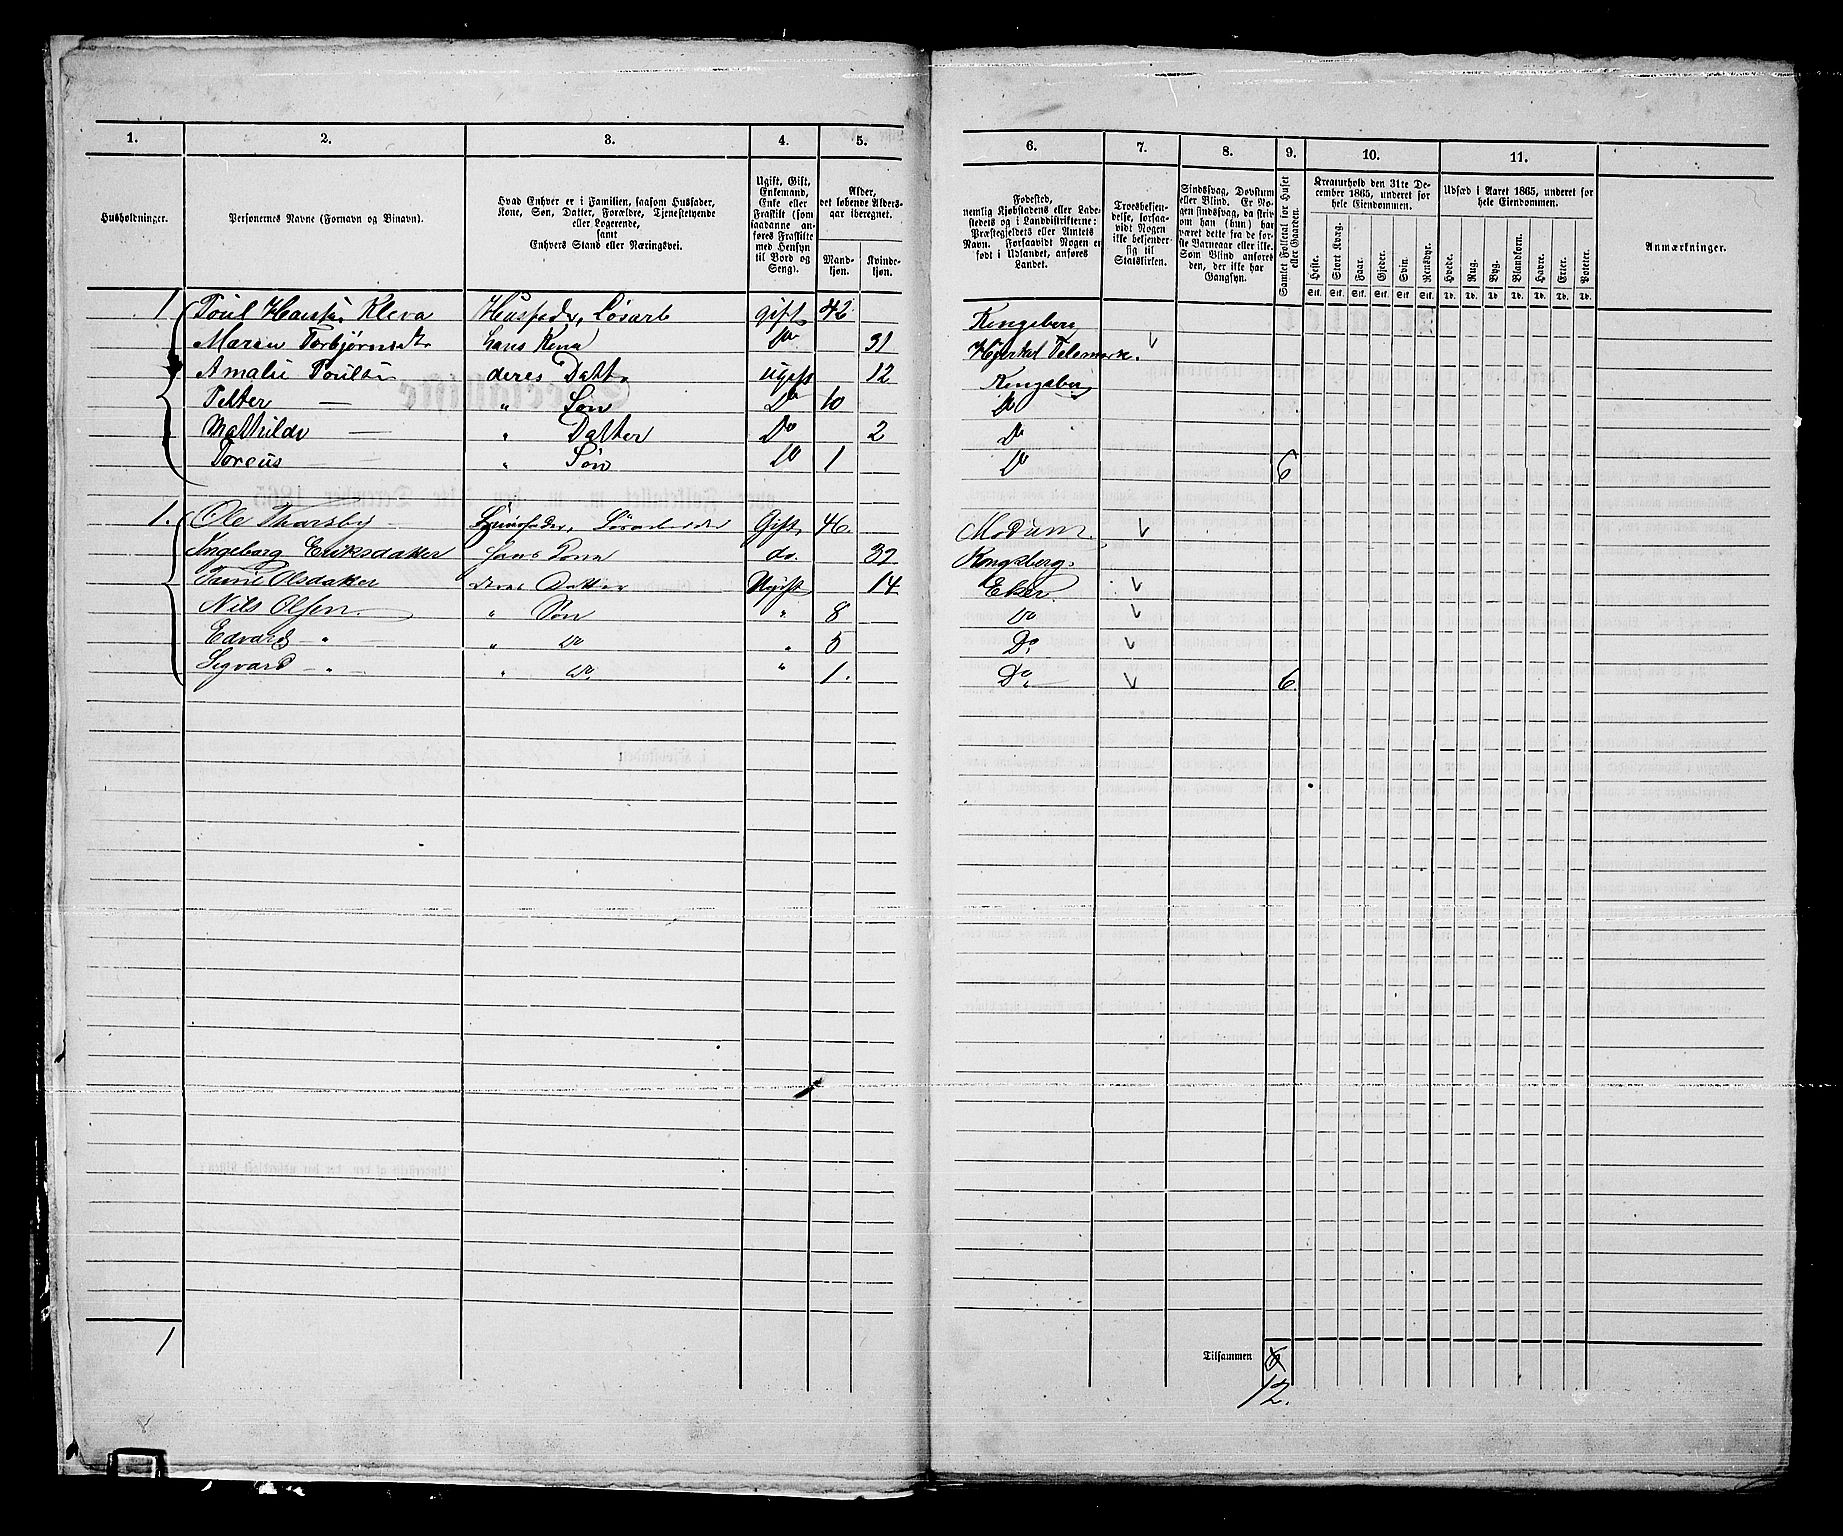 1. 2. 3. 4. 5. 6. 7. 8. 9. 10. 11.
Husholdninger.
Personernes Navne (Fornavn og Binavn).
Hvad Enhver er i Familien, saasom Husfader,
Kone, Søn, Datter, Forældre, Tjenestetyende
eller Logerende,
samt
Enhvers Stand eller Næringsvei.
Ugift, Gift,
Enkemand,
Enke eller
Fraskilt (som
saadanne an-
føres Fraskilte
med Hensyn
til Bord og
Seng).
Alder,
det løbende Alders-
aar iberegnet.
Mand-
kjøn.
Kvinde-
kjøn.
Fødested,
nemlig Kjøbstadens eller Lade-
stedets og i Landdistrikterne:
Præstegjeldets eller Amtets
Navn. Forsaavidt Nogen er
født i Udlandet, anføres
Landet.
Troesbekjen-
delse, forsaa-
vidt Nogen
ikke bekjender
sig til
Statskirken.
Sindssvag, Døvstum
eller Blind. Er No-
gen sindssvag, da skriv
om han (hun) har
været dette fra de før-
ste Barneaar eller ikke.
Som Blind anføres
den, der ikke har
Gangsyn.
Samlet Folketal for Huset
eller Gaarden.
Kreaturhold den 31te De-
cember 1865, underet for
hele Eiendommen.
Heste. Stort Kvæg. Faar. Gjeder. Svin. Rensdyr.
Stk. Stk. Stk. Stk. Stk. Stk.
Udsæd i Aaret 1865, underet for
hele Eiendommen.
Hvede. Rug. Byg. Blandkorn. Havre. Erter. Poteter.
Td. Td. Td. Td. Td. Td. Td.
Anmærkninger.
1 Poul Kleva Husfader, Løsarb gift 42 Kongsberg
Maren Torbjørnsdtr hans Kona Do 31 Hjerdal Telemark.
Amalie Poulsen deres Datt. ugift 12 Kongsberg
Petter — " Søn Do 10 Do
Mathilde — " Datter Do 2 Do
— " Søn Do 1 Do 6
1. Ole Thorsby — Huusfader, Løsarbeider Gift 46. Modum.
Ingeborg Eriksdatter hans Kona do. 32 Kongsberg.
Olsdatter deres Datter Ugift 14 Eker
Nils Olsen. " Søn " 8 Do
Edvard — " — " Do " 5 Do
Sigvard — " — " Do " 1. Do 6.
1
Tilsammen 6
12.